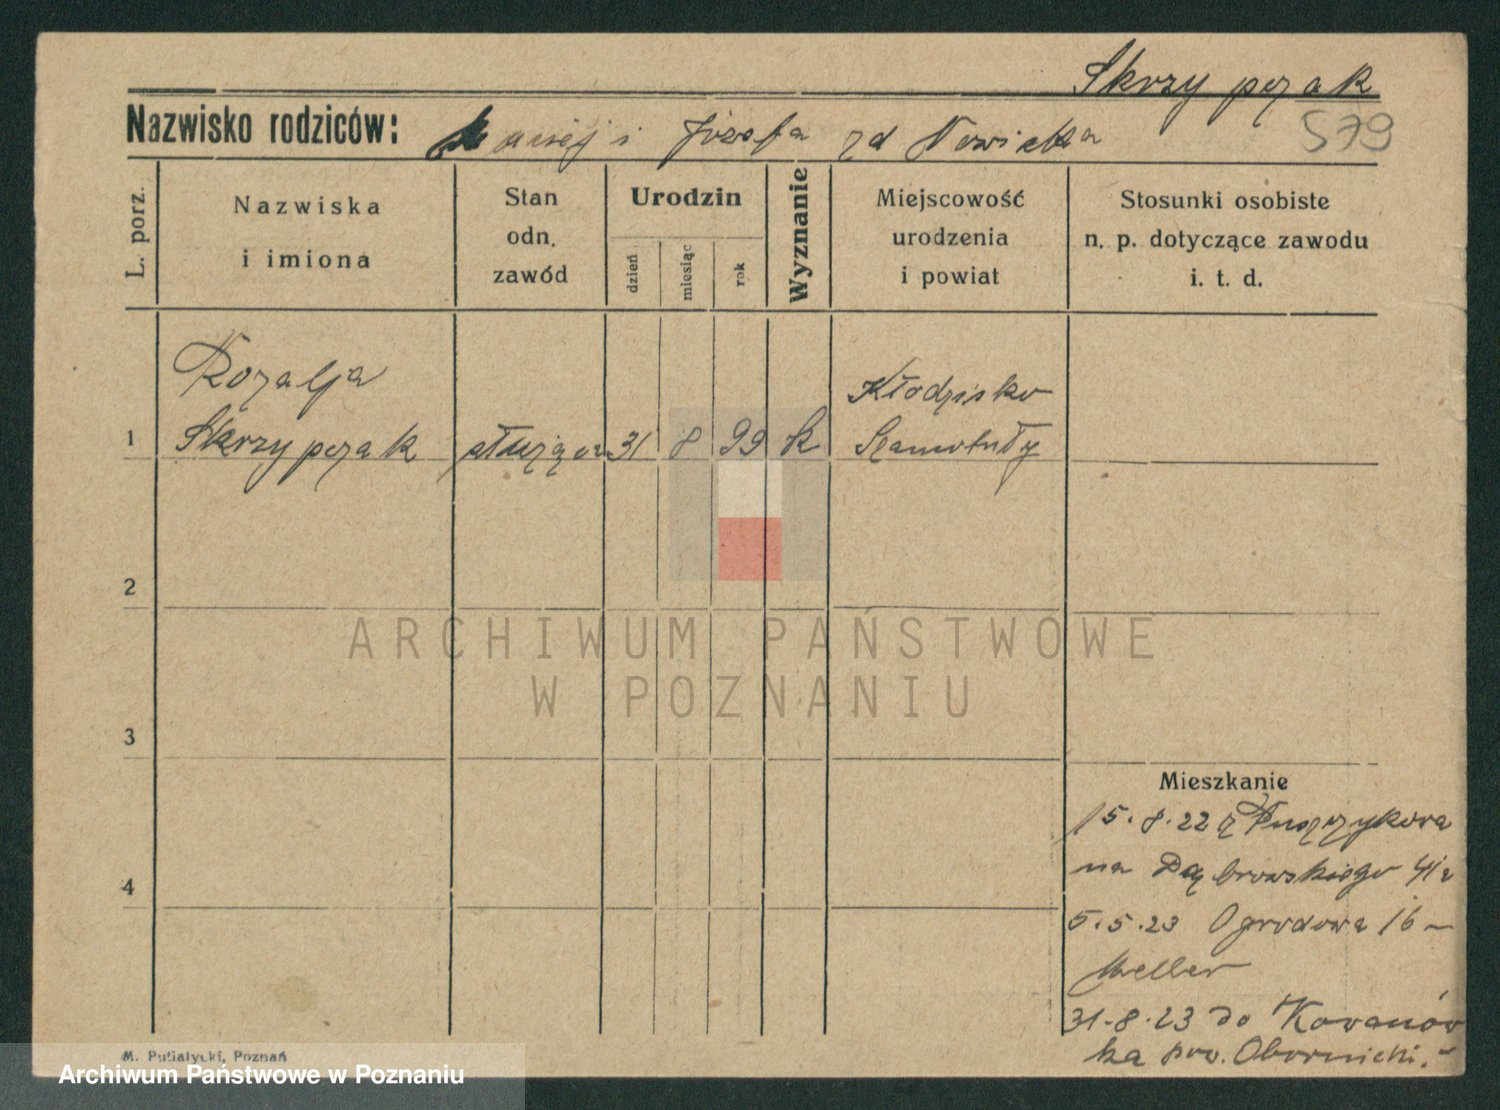 Skrzypczak
Nazwisko rodziców: Maciej i Józefa zd Nowicka 579
L. porz.
Nazwiska
i imiona
Stan
odn.
zawód
Urodzin
dzień
miesiąc
rok
Wyznanie
Miejscowość
urodzenia
i powiat
Stosunki osobiste
n. p. dotyczące zawodu
i. t. d.
Rozalja Kłodzisko
1 Skrzypczak służąca 31 8 99 k Szamotuły
2
ARCHIWUM PAŃSTWOWE
W POZNANIU
3
Mieszkanie
15.8.22 z Puszczykowa
na Dąbrowskiego 41a
4
5.5.23 Ogrodowa 16 –
Meller
31-8.23 do Kowanów
ka pow. Obornicki.–
M. Putiatycki, Poznań
Archiwum Państwowe w Poznaniu